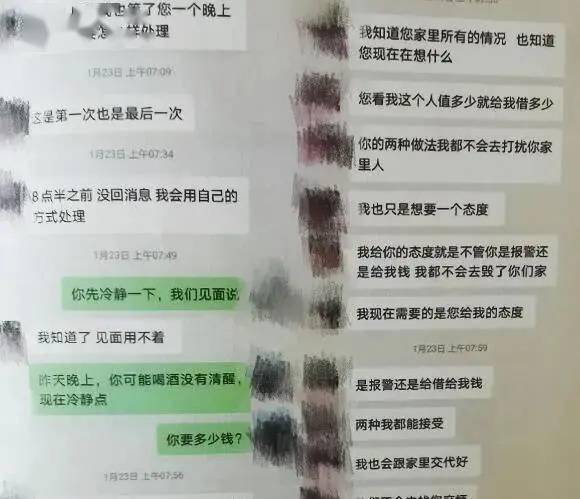 了您一个晚上
样处理
1月23日 上午07:09
这是第一次也是最后一次
1月23日 上午07:34
8点半之前 没回消息 我会用自己的
方式处理
1月23日 上午07:49
你先冷静一下，我们见面说
我知道了 见面用不着
昨天晚上，你可能喝酒没有清醒，
现在冷静点
你要多少钱？
1月23日 上午07:56
我知道您家里所有的情况 也知道
您现在在想什么
您看我这个人值多少就给我借多少
你的两种做法我都不会去打扰你家
里人
我也只是想要一个态度
我给你的态度就是不管你是报警还
是给我钱 我都不会去毁了你们家
我现在需要的是您给我的态度
1月23日 上午07:59
是报警还是给借给我钱
两种我都能接受
我也会跟家里交代好